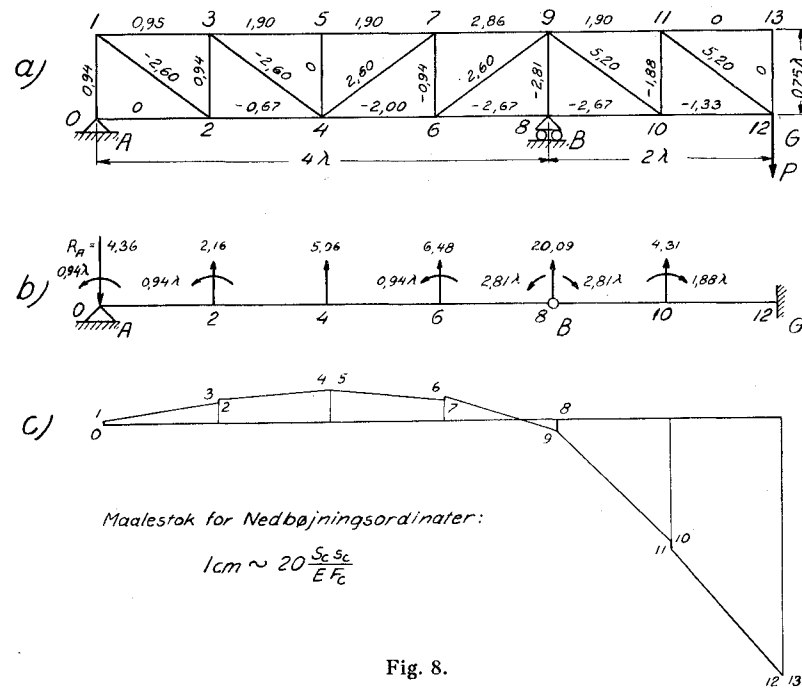 1 0,95 3 1,90 5 1,90 7 2,86 9 1,90 11 0 13
a) 0,94 -2,60 0,94 -2,60 0 2,60 -0,94 2,60 -2,81 5,20 -1,88 5,20 0 0,75λ
0 0 2 -0,67 4 -2,00 6 -2,67 8 -2,67 10 -1,33 12 G
A B P
4λ 2λ
R_A = 4,36 2,16 5,06 6,48 20,09 4,31
0,94λ 0,94λ 0,94λ 2,81λ 2,81λ 1,88λ
b) 0 A 2 4 6 8 B 10 12 G
c) 1 0 3 2 4 5 6 7 8 9 10 11 12 13
Maalestok for Nedbøjningsordinater:
1cm ~ 20 S_c s_c / E F_c
Fig. 8.